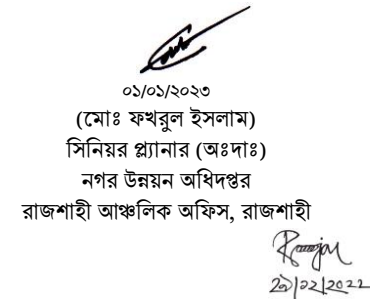 ০১/০১/২০২৩
(মোঃ ফখরুল ইসলাম)
সিনিয়র প্ল্যানার (অঃদাঃ)
নগর উন্নয়ন অধিদপ্তর
রাজশাহী আঞ্চলিক অফিস, রাজশাহী